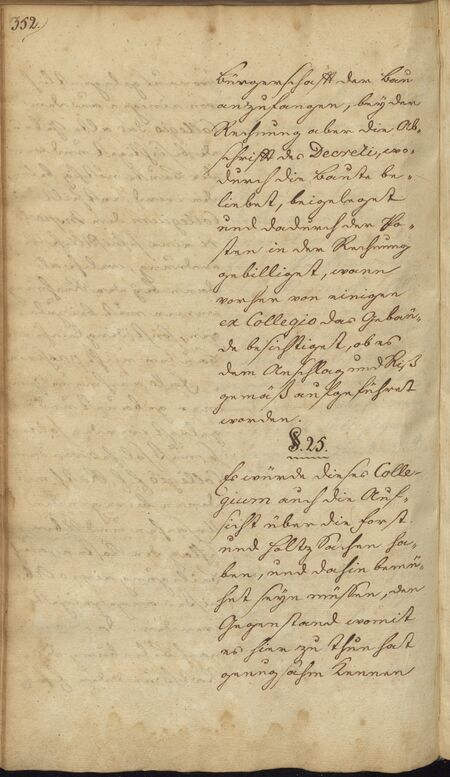 352.
Bürgerschafft der Bau
anzufangen, beÿ der
Rechnung aber die Ab„
schrifft des Decreti, wo„
durch die Baute be„
liebet, beigeleget
und dadurch der Po„
sten in der Rechnung
gebilliget, wann
vorher von einigen
ex Collegio das Gebäu„
de besichtiget, ob es
dem Anschlag und Riß
gemäß aufgeführet
worden.
§. 25.
Es würde dieses Colle„
gium auch die Auf„
sicht über die Forst
und Holtz Sachen ha„
ben, und dahin bemü„
het seÿn müssen, den
Gegenstand womit
es hier zu thun hat
genugsahm kennen